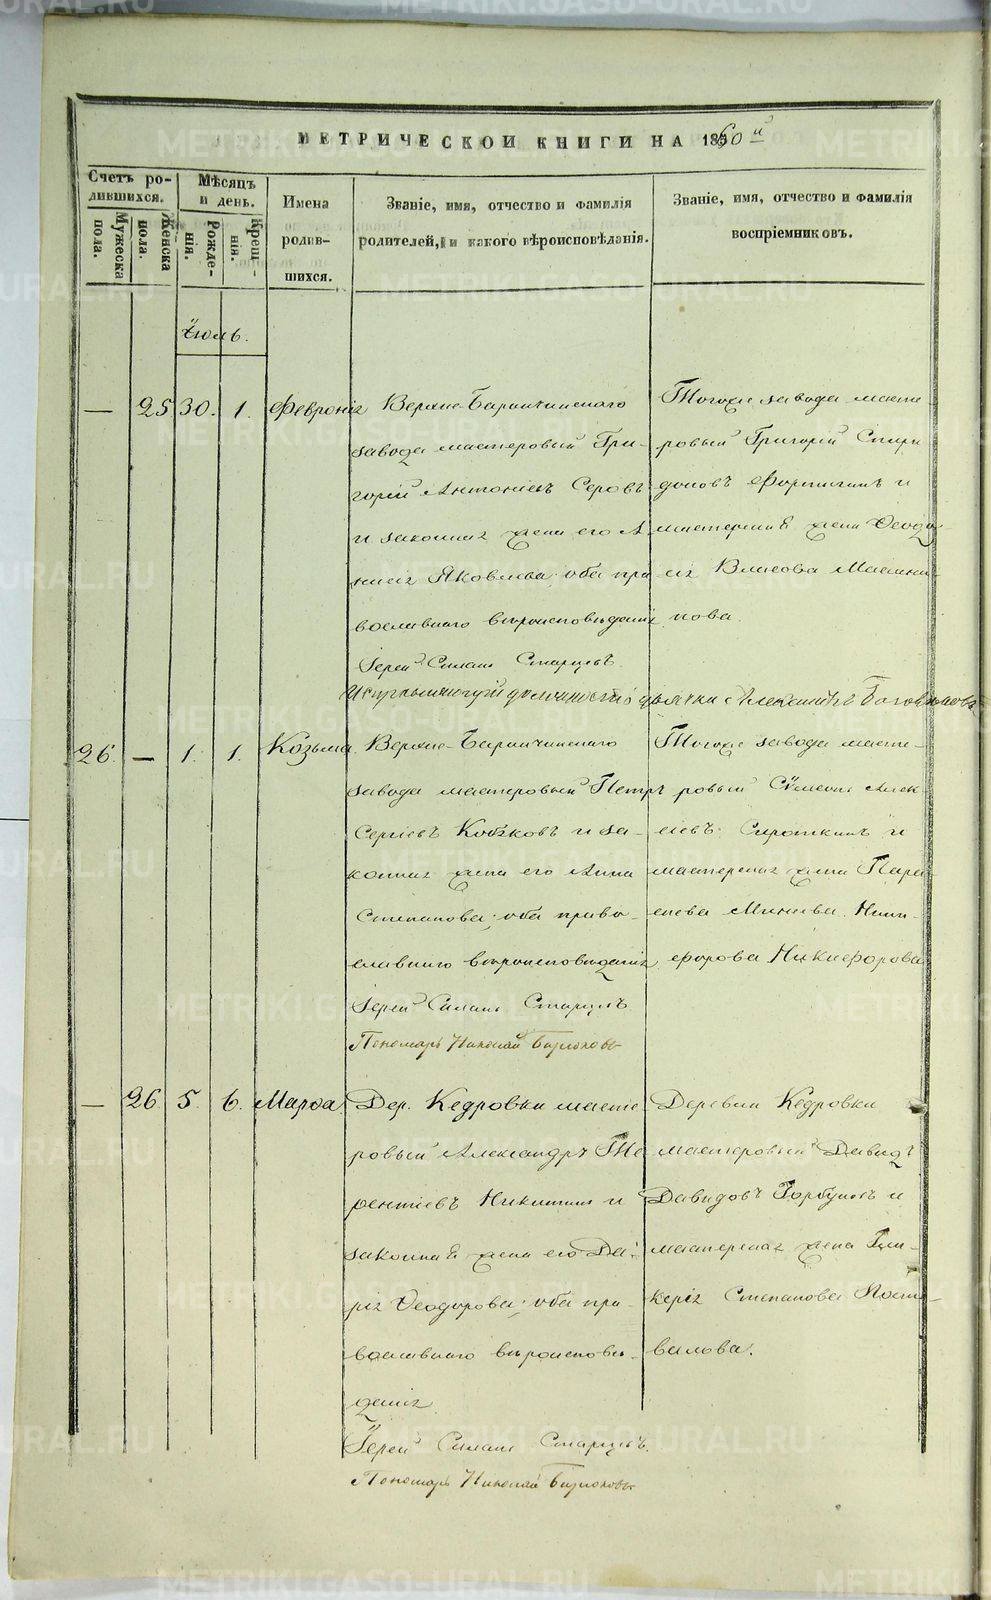 МЕТРИЧЕСКОЙ КНИГИ НА 1860й
Счетъ родившихся.
Мѣсяцъ и день.
Имена родившихся.
Званіе, имя, отчество и фамилія родителей, и какого вѣроисповѣданія.
Званіе, имя, отчество и фамилія воспріемниковъ.
Мужеска пола.
Женска пола.
Рожденія.
Крещенія.
Іюль.
— 25 30. 1. Февронія
Верхне-Баранчинскаго
завода мастеровый Гри-
горій Антоніевъ Серовъ
и законная жена его А
нисія Яковлева; оба пра
вославнаго вѣроисповѣданія
Іерей Симеонъ Старцевъ.
Исправляющій должность дьячка
Тогоже завода масте-
ровый Григорій Спири
доновъ и
мастерская жена Ѳеодо-
сія Власова
нова.
26. — 1. 1. Козьма
Верхне-Баранчинскаго
завода мастеровый Петръ
Сергіевъ и за-
конная жена его Анна
Степанова; оба право-
славнаго вѣроисповѣданія
Іерей Старцевъ
Пономарь Николай Бирюковъ
Тогоже завода масте-
ровый Симеонъ Алек
сіевъ Сироткинъ и
мастерская жена Пара
скева Минѣева
Никифорова
— 26 5. 6. Марѳа
Дер. Кедровки масте
ровый Александръ Те
рентіевъ Никитинъ и
законная жена его Да-
рія Ѳеодорова; оба пра-
вославнаго вѣроисповѣ-
данія
Іерей Старцевъ.
Пономарь Николай Бирюковъ
Деревни Кедровки
мастеровый Давидъ
Давидовъ Горбуновъ и
мастерская жена Гли-
керія Степанова Пост-
валова.
METRIKI.GASO-URAL.RU